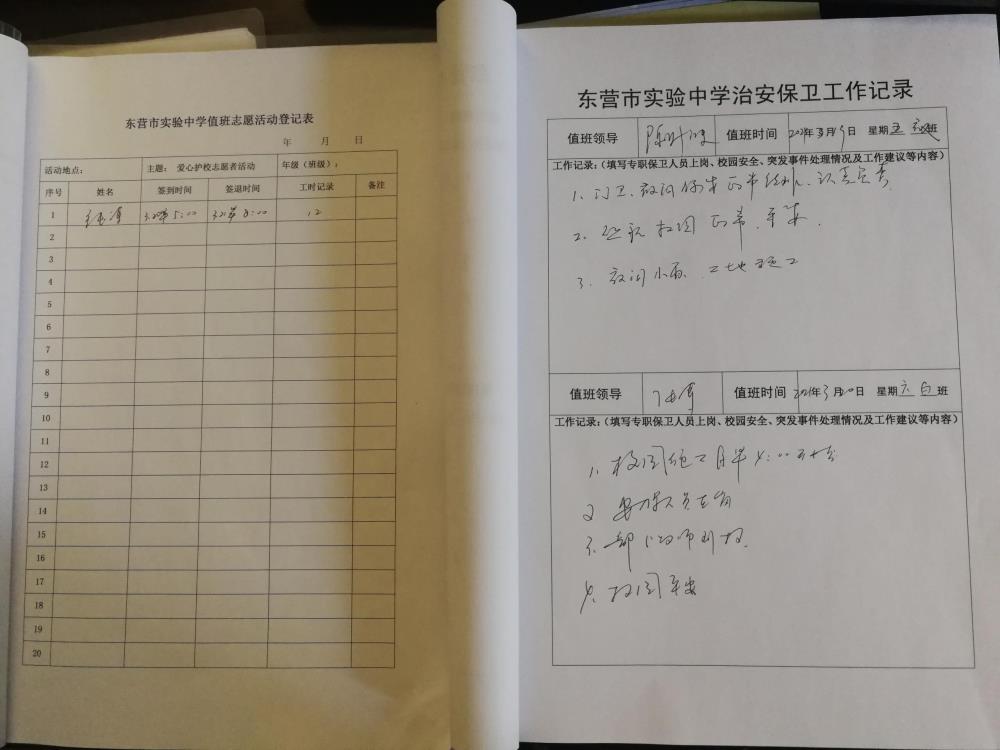 东营市实验中学值班志愿活动登记表
年 月 日
活动地点： 主题： 爱心护校志愿者活动 年级（班级）：
序号 姓名 签到时间 签退时间 工时记录 备注
1 12
2
3
4
5
6
7
8
9
10
11
12
13
14
15
16
17
18
19
20
东营市实验中学治安保卫工作记录
值班领导 值班时间 年 月 日 星期五 班
工作记录：（填写专职保卫人员上岗、校园安全、突发事件处理情况及工作建议等内容）
1. 门卫、夜间
2. 校园正常、平安.
3. 夜间小雨、工地施工
值班领导 值班时间 年3月20日 星期六白班
工作记录：（填写专职保卫人员上岗、校园安全、突发事件处理情况及工作建议等内容）
1. 校园施工
2 人员在岗
3. 部分老师到校.
4. 校园平安